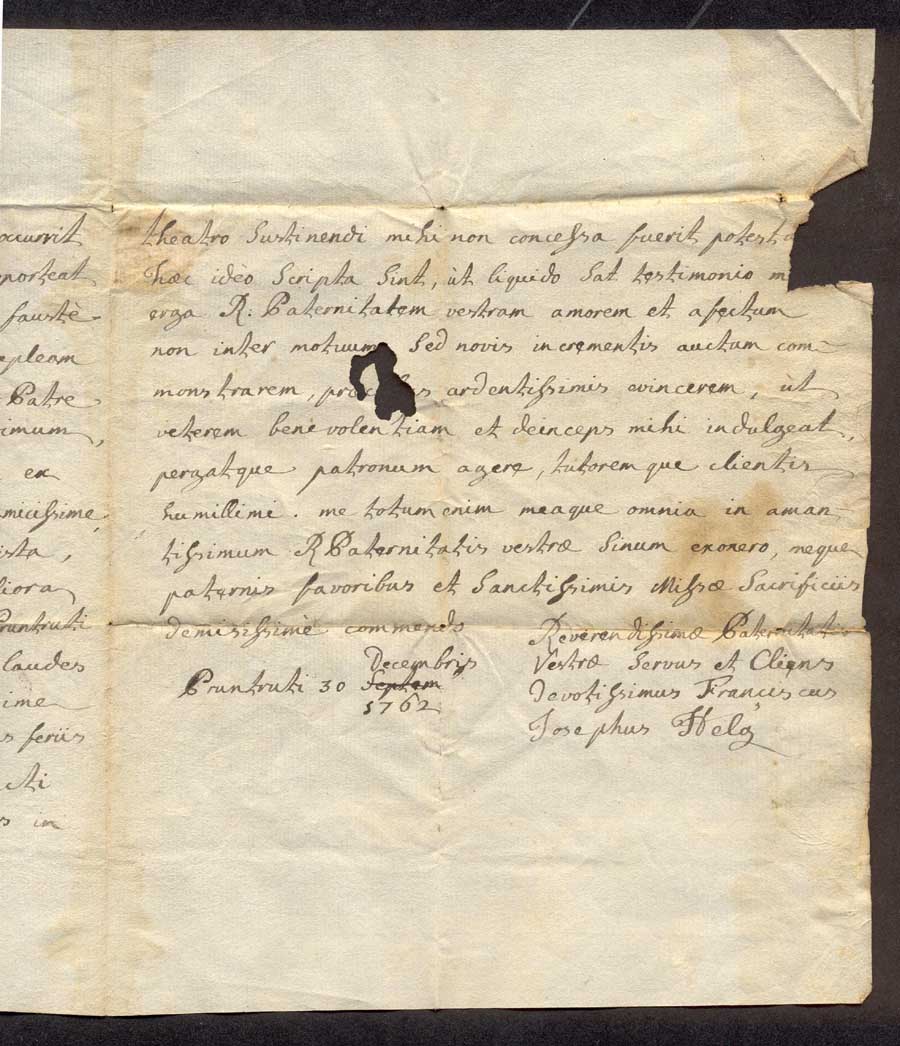 occurrit
oporteat
faustè
epleam
Patre
imum,
ex
micissime
ista,
liora
Pruntruti
laudes
ime
s feriis
cti
s in
theatro sustinendi mihi non concessa fuerit potesta
hæc idèo scripta sint, ùt liquido sat testimonio m
erga R. Paternitatem vestram amorem et afectum
non inter motuum sed novis incrementis auctum com-
monstrarem, ardentissimis evincerem, ùt
veterem benevolentiam et deinceps mihi indulgeat,
pergatque patronum agere, tutoremque clientis
humillimi. me totum enim meaque omnia in aman-
tissimum R Paternitatis vestræ sinum exonero, meque
paternis favoribus et sanctissimis Missæ Sacrificiis
demisissimè commendo
Decembris
Pruntruti 30 Septem
1762
Reverendissimæ Paternitatis
Vestræ servus et Cliens
devotissimus Franciscus
Josephus Helg